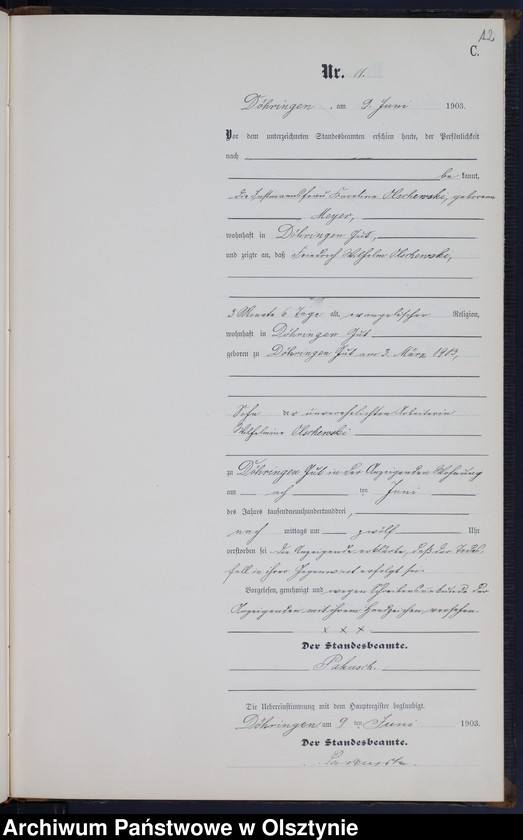 12
C.
Nr. 11.
Döhringen, am 9. Juni 1903.
Vor dem unterzeichneten Standesbeamten erschien heute, der Persönlichkeit
nach
be kannt,
die Instmannsfrau Karoline Olschewski, geborene
Meyer,
wohnhaft in Döhringen Gut,
und zeigte an, daß Friedrich Wilhelm Olschewski,
3 Monate 6 Tage alt, evangelischer Religion,
wohnhaft in Döhringen Gut
geboren zu Döhringen Gut am 3. März 1903,
Sohn der unverehelichten Arbeiterin
Wilhelmine Olschewski
zu Döhringen Gut in der Anzeigenden Wohnung
am ten Juni
des Jahrs tausendneunhundertunddrei,
nach mittags um zwölf Uhr
verstorben sei. Die Anzeigende erklärte, daß der Todes-
fall in ihrer Gegenwart erfolgt sei.
Vorgelesen, genehmigt und wegen Schreibensunkunde der
Anzeigenden mit ihrem Handzeichen versehen.
x x x
Der Standesbeamte.
Die Uebereinstimmung mit dem Hauptregister beglaubigt.
Döhringen am 9 ten Juni 1903.
Der Standesbeamte.
Archiwum Państwowe w Olsztynie